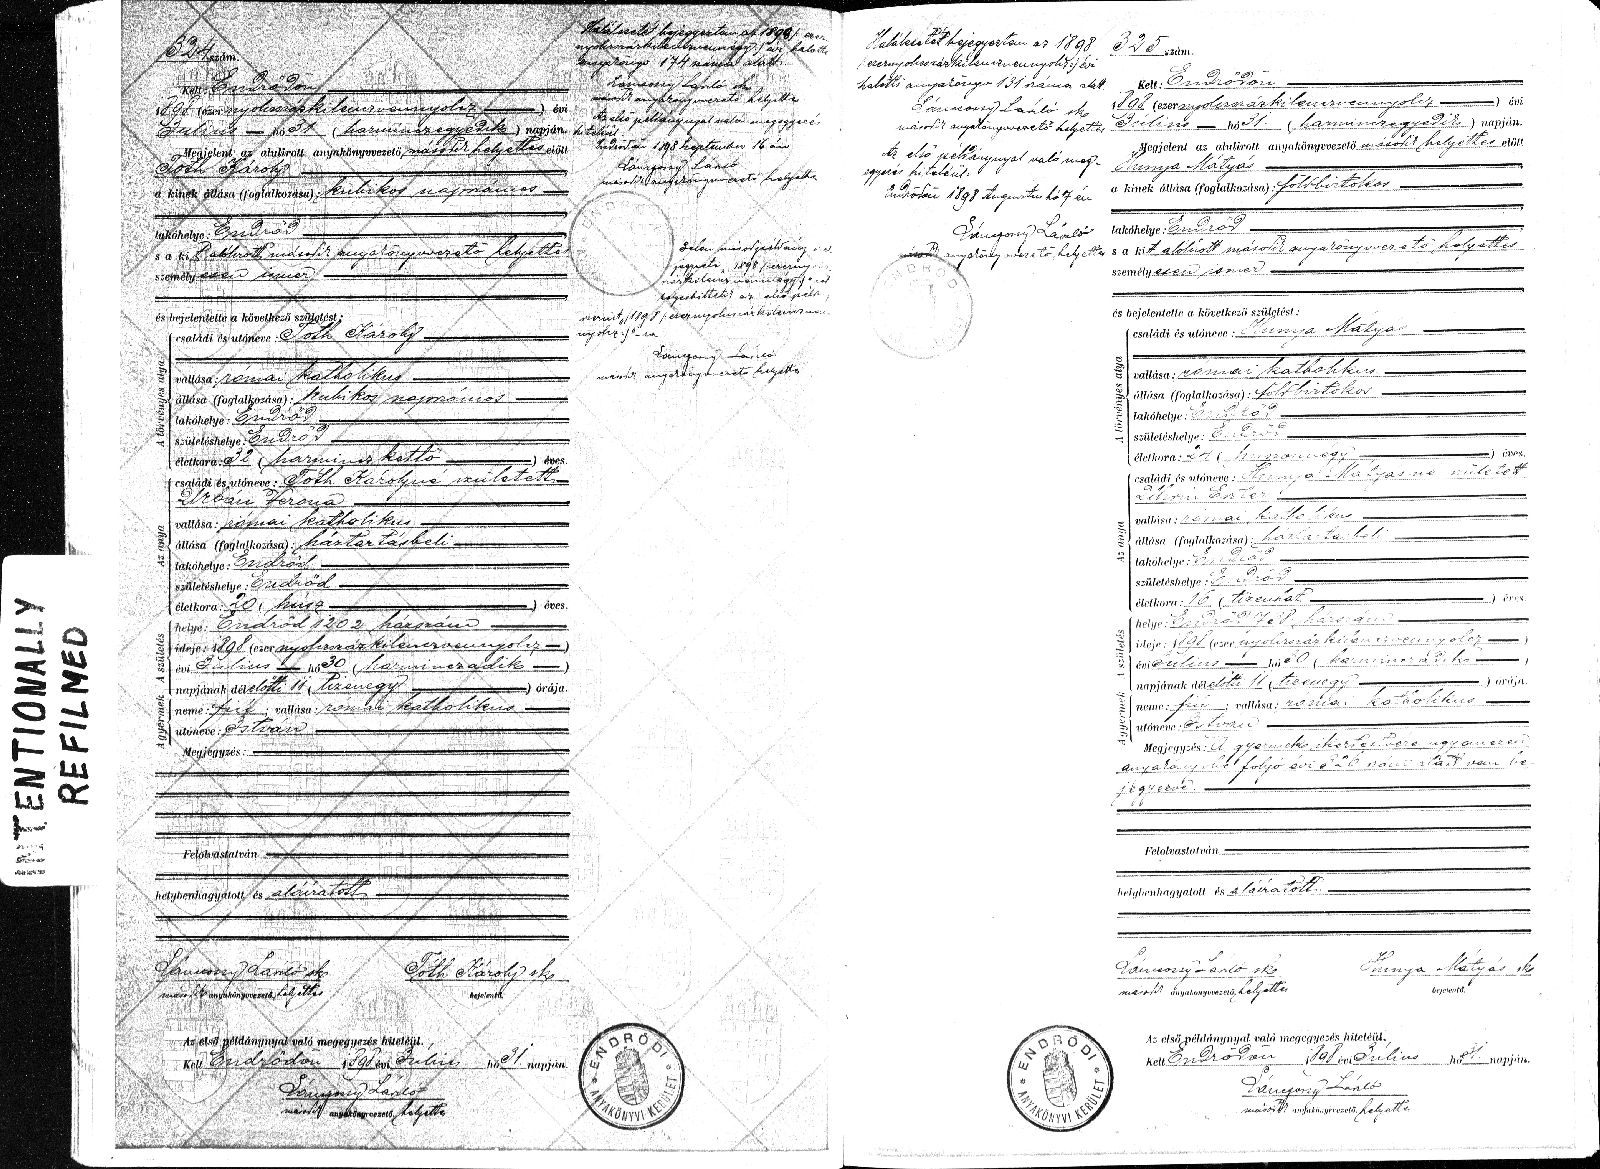 INTENTIONALLY
REFILMED
324 szám.
Kelt: Endrődön
1898 (ezer nyolcszázkilencvennyolcz) évi
Július hó 31 (harminczegyedik) napján.
Megjelent az alulirott anyakönyvvezető másodk helyettes előtt
Tóth Károly
a kinek állása (foglalkozása): kubikos napszámos
lakóhelye: Endrőd
s a kit alulirott másodk anyakönyvvezető helyettes
személyesen ismer
és bejelentette a következő születést:
A törvényes atya
családi és utóneve: Tóth Károly
vallása: római katholikus
állása (foglalkozása): kubikos napszámos
lakóhelye: Endrőd
születéshelye: Endrőd
életkora: 32 (harminczkettő) éves.
Az anya
családi és utóneve: Tóth Károlyné született
Urbán Verona
vallása: római katholikus
állása (foglalkozása): háztartásbeli
lakóhelye: Endrőd
születéshelye: Endrőd
életkora: 20 (húsz) éves.
A gyermek A születés
helye: Endrőd 1202 házszám
ideje: 1898 (ezer nyolcszázkilencvennyolcz)
évi Július hó 30 (harminczadik)
napjának délelőtti 11 (tizenegy) órája.
neme: fiú; vallása: római katholikus
utóneve: István
Megjegyzés:
Felolvastatván
helybenhagyatott és aláíratott
Lánczony László sk Tóth Károly sk
másodk anyakönyvvezető, helyettes bejelentő.
Az első példánynyal való megegyezés hiteléül.
Kelt Endrődön 1898 évi Július hó 31 napján.
Lánczony László
másodk anyakönyvvezető, helyettes
ENDRŐDI ANYAKÖNYVI KERÜLET
Halálesetét bejegyeztem az 1898
halotti
anyakönyv 174 száma alatt.
Lánczony László sk
másodk anyakönyvvezető helyettes
Az első példánynyal való megegyezés
hiteléül
Endrődön 1898 Szeptember 16 án
Lánczony László
másodk anyakönyvvezető helyettes
Lánczony László
másodk anyakönyvvezető helyettes
Halálesetét bejegyeztem az 1898
(ezernyolcszázkilencvennyolcz) évi
halotti anyakönyv 131 száma alatt
Lánczony László sk
másodk anyakönyvvezető helyettes
Az első példánynyal való meg-
egyezés hiteléül.
Endrődön 1898 Augusztus hó 7 én
Lánczony László
másodk anyakönyvvezető helyettes
325 szám.
Kelt: Endrődön
1898 (ezer nyolcszázkilencvennyolcz) évi
Július hó 31. (harminczegyedik) napján.
Megjelent az alulirott anyakönyvvezető másodk helyettes előtt
Hunya Mátyás
a kinek állása (foglalkozása): földbirtokos
lakóhelye: Endrőd
s a kit alulirott másodk anyakönyvvezető helyettes
személyesen ismer
és bejelentette a következő születést:
A törvényes atya
családi és utóneve: Hunya Mátyás
vallása: római katholikus
állása (foglalkozása): földbirtokos
lakóhelye: Endrőd
születéshelye: Endrőd
életkora: 24 (huszonnégy) éves.
Az anya
családi és utóneve: Hunya Mátyásné született
Eszter
vallása: római katholikus
állása (foglalkozása): háztartásbeli
lakóhelye: Endrőd
születéshelye: Endrőd
életkora: 16 (tizenhat) éves
A gyermek A születés
helye: Endrőd házszám
ideje: 1898 (ezer nyolcszázkilencvennyolcz)
évi Július hó 30 (harminczadik)
napjának délelőtti 11 (tizenegy) órája.
neme: fiú; vallása: római katholikus
utóneve: István
Megjegyzés: A gyermek ikertestvére ugyanezen
anyakönyvbe folyó évi 326 szám alatt van be-
jegyezve.
Felolvastatván
helybenhagyatott és aláíratott.
Lánczony László sk Hunya Mátyás sk
másodk anyakönyvvezető, helyettes bejelentő.
Az első példánynyal való megegyezés hiteléül.
Kelt Endrődön 1898 évi Július hó 31 napján.
Lánczony László
másodk anyakönyvvezető, helyettes
ENDRŐDI ANYAKÖNYVI KERÜLET